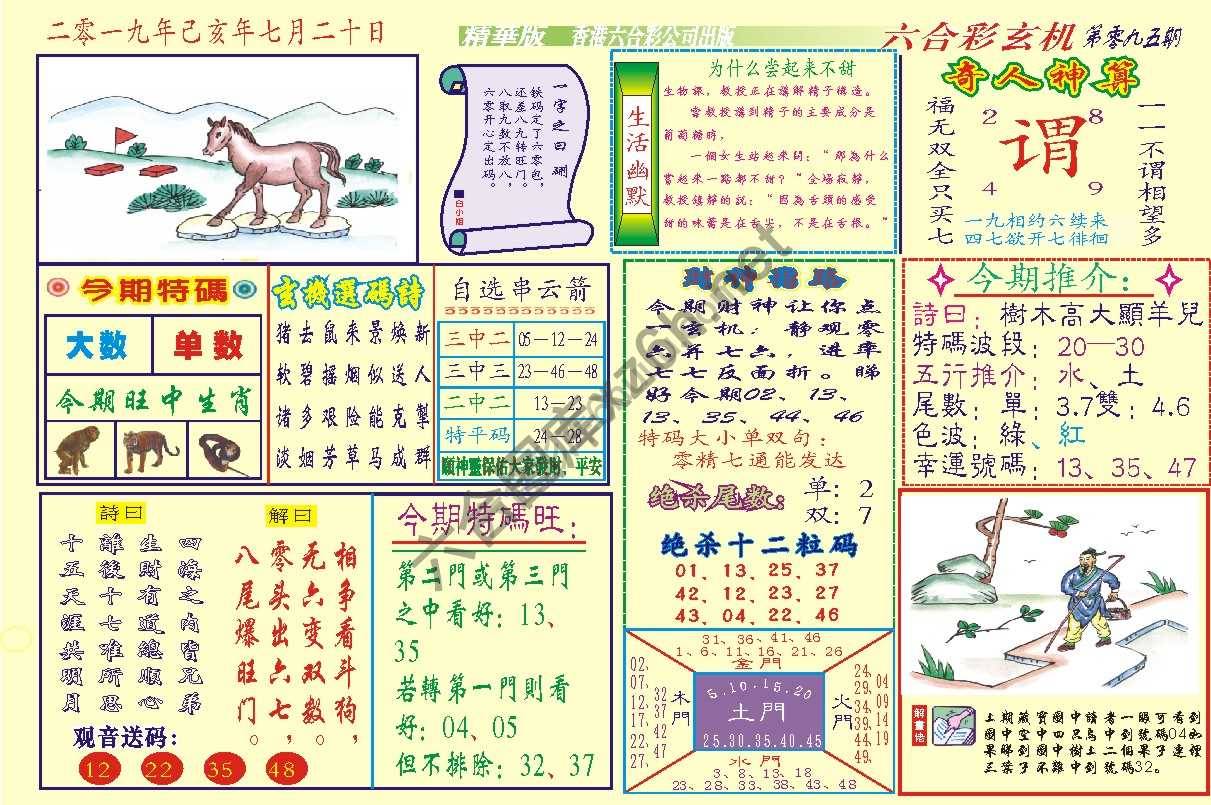 二零一九年己亥年七月二十日
精華版 香港六合彩公司出版
六合彩玄机 第零九五期
一字之曰:砌
铁码定了六零包,
还差八九转旺门。
八取九数不放八,
六零开心定出码。
白小姐
生活幽默
为什么尝起来不甜
生物課,教授正在講解精子構造。
當教授講到精子的主要成分是
葡萄糖時,
一個女生站起來問:“那為什么
嘗起来一路都不甜?“全場寂靜,
教授鎮靜的說:“因為舌頭的感受
甜的味蕾是在舌尖,不是在舌根。”
奇人神算
福无双全只买七
2 8
谓
4 9
一一不谓相望多
一九相约六续来
四七欲开七徘徊
今期特碼
大数 单数
今期旺中生肖
玄機選碼詩
猪去鼠来景焕新
软碧摇烟似送人
诸多艰险能克掣
淡烟芳草马成群
自选串云箭
三中二 05—12—24
三中三 23—46—48
二中二 13—23
特平码 24—28
願神靈保佑大衆發財,平安
財神靈路
今期财神让你点
一玄机:静观零
六弄七六,进率
七七反面折。睇
好今期02、13、
13、35、44、46
特码大小单双句:
零精七通能发达
绝杀尾数: 单:2
双:7
绝杀十二粒码
01、13、25、37
42、12、23、27
43、04、22、46
今期推介:
詩曰:樹木高大顯羊兒
特碼波段:20—30
五行推介:水、土
尾數:單:3.7雙:4.6
色波:綠、紅
幸運號碼:13、35、47
詩曰
四海之内皆兄弟
生財有道總順心
離後十七难所思
十五天涯共明月
解曰
相争看斗狗,
无六变双数,
零头出六七。
八尾爆旺门
观音送码:
12 22 35 48
今期特碼旺:
第二門或第三門
之中看好:13、
35
若轉第一門則看
好:04、05
但不排除:32、37
31、36、41、46
1、6、11、16、21、26
金門
02、07、12、17、22、27、
32、37、42、47
木門
5.10.15.20
土門
25.30.35.40.45
火門
24、29、34、39、44、49、
04、09、14、19
水門
3、8、13、18
23、28、33、38、43、48
解畫悟
上期藏寶圖中讀者一眼可看到
圖中空中四只鳥中到號碼04如
果睇到圖中樹上二個果子連徑
三葉子不難中到號碼32。
六合图库xxz6hu.net